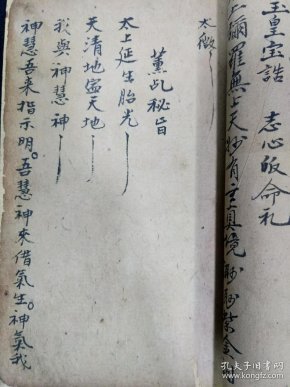 玉皇宝誥　志心皈命礼
上彌羅無上天妙有玄真境㫾㫾紫金
太微
薰乩秘旨
太上延生胎光
天清地儘天地
我與神慧神
神慧吾来指示明。吾慧神來借氣生。神氣我
孔夫子旧书网